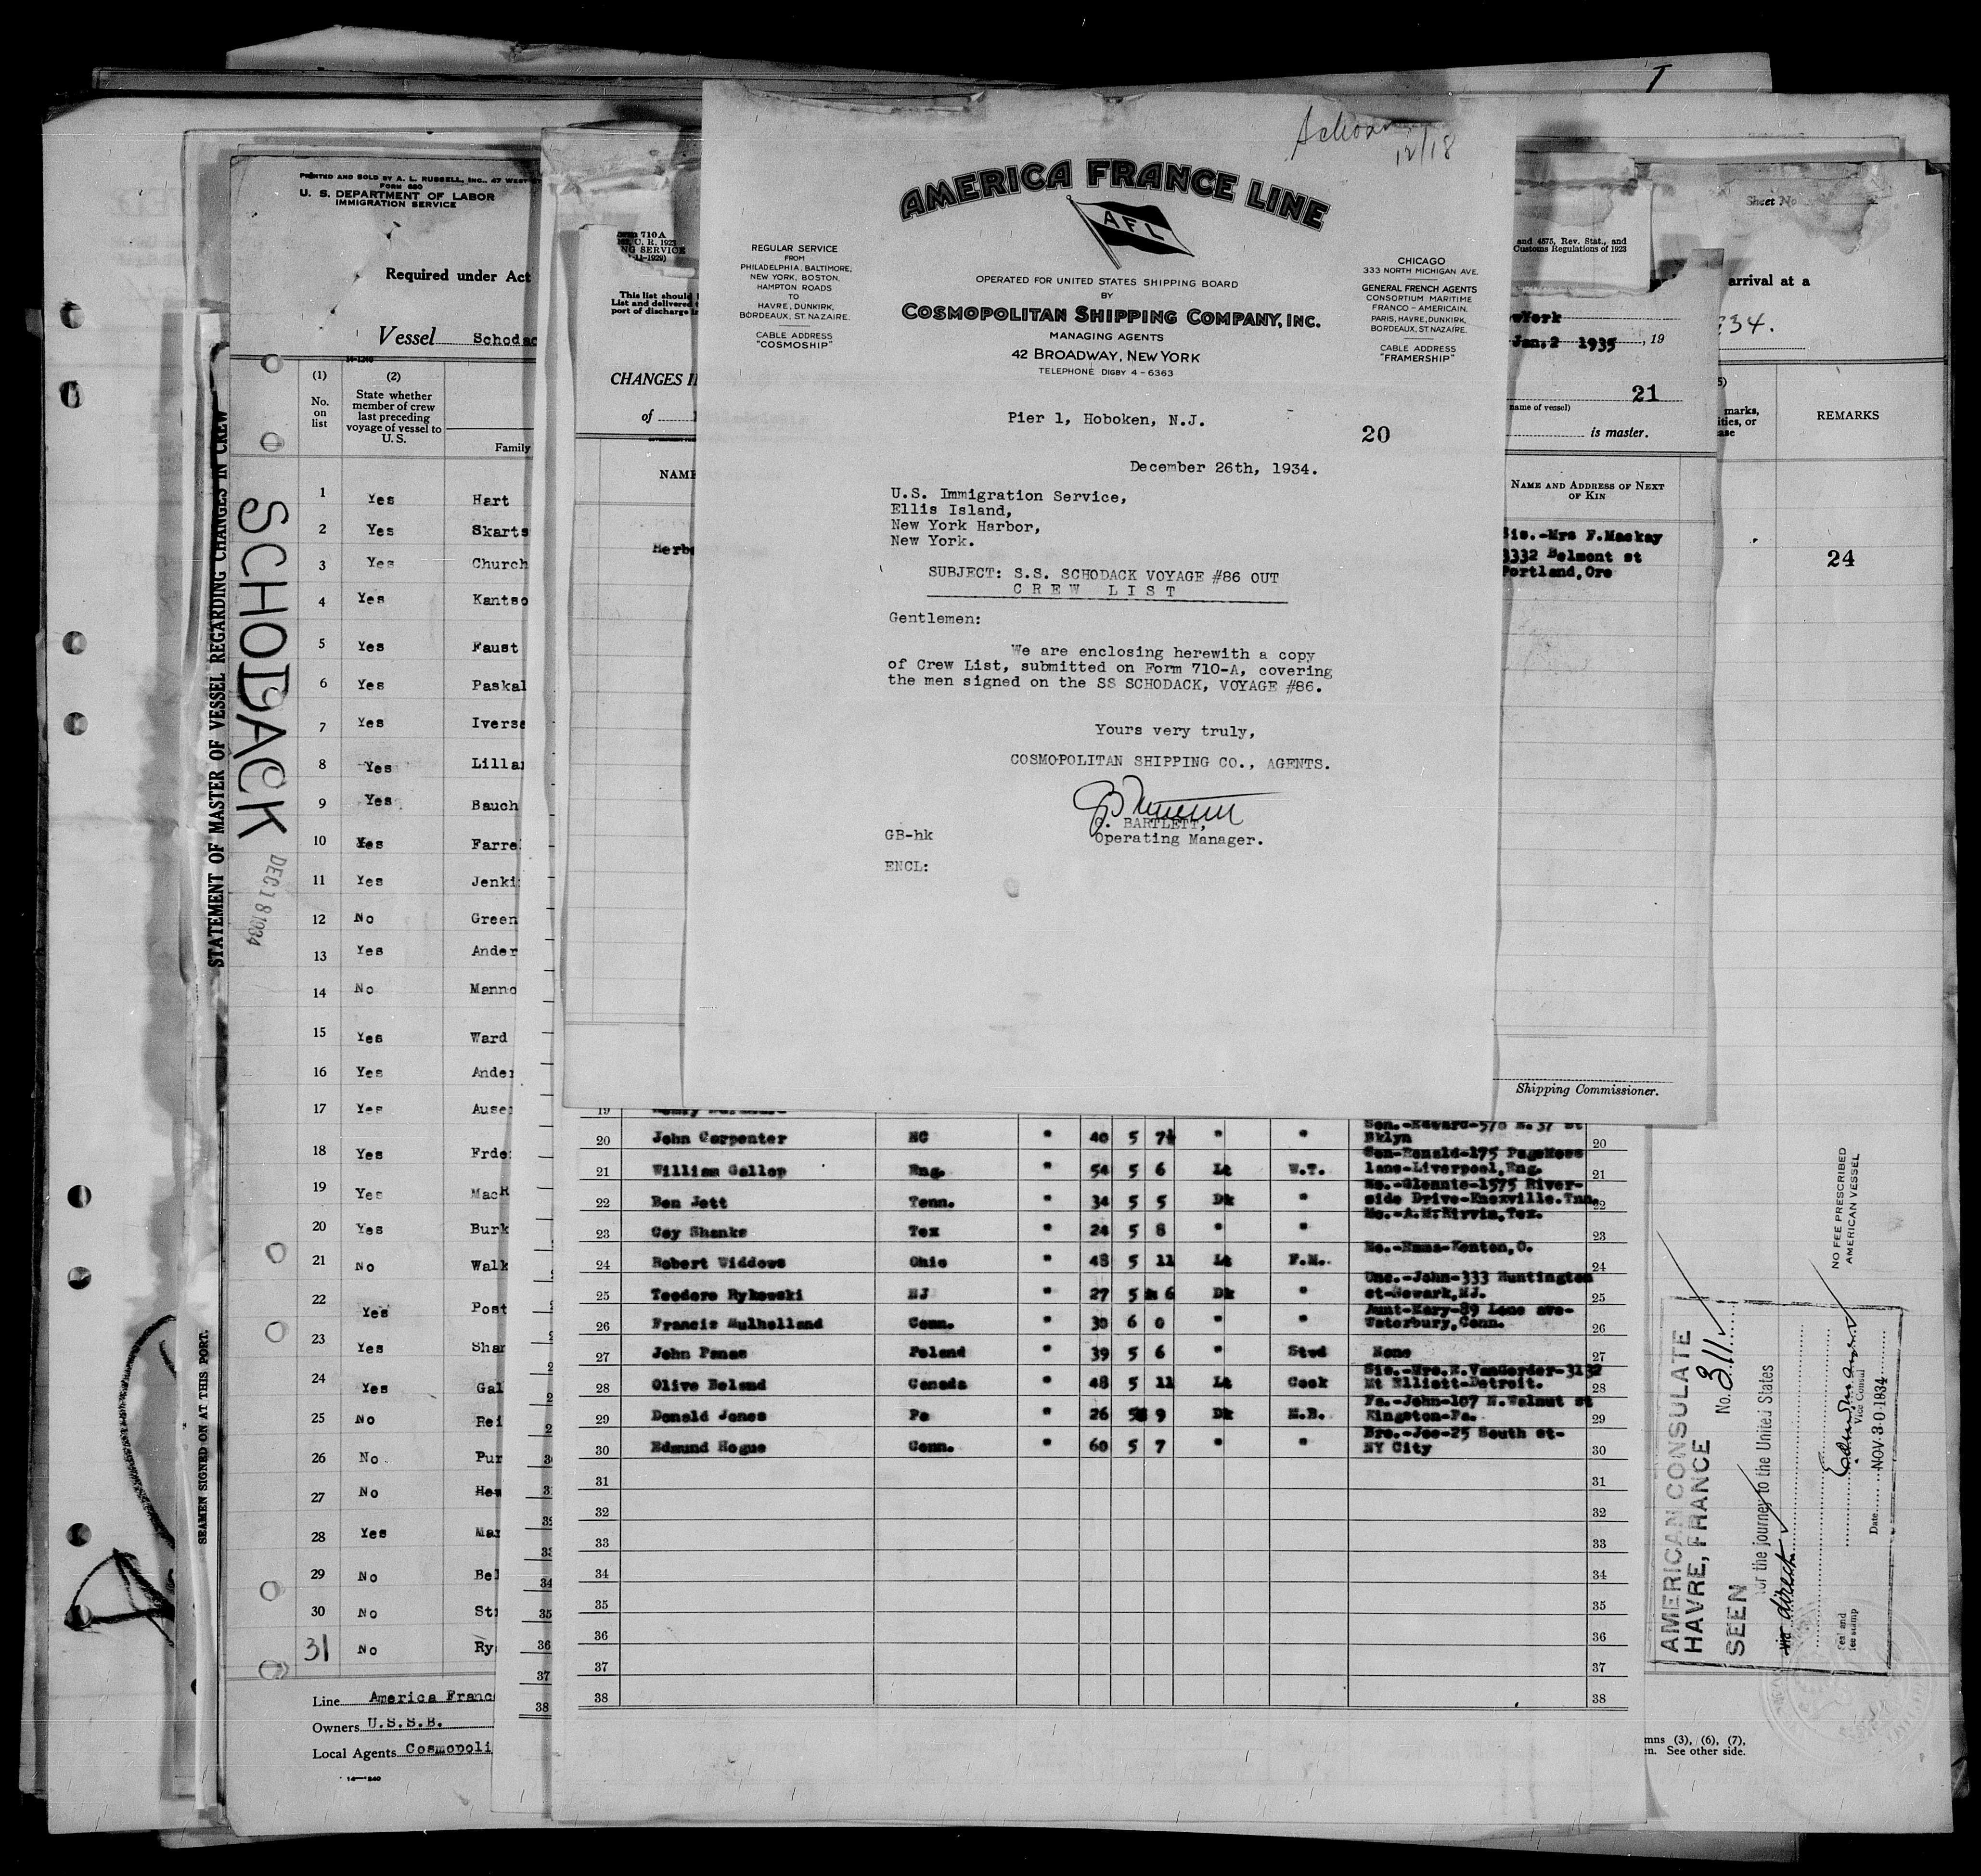 12/18
AMERICA FRANCE LINE
AFL
REGULAR SERVICE
FROM
PHILADELPHIA, BALTIMORE,
NEW YORK, BOSTON,
HAMPTON ROADS
TO
HAVRE, DUNKIRK,
BORDEAUX, ST. NAZAIRE.
CABLE ADDRESS
"COSMOSHIP"
OPERATED FOR UNITED STATES SHIPPING BOARD
BY
COSMOPOLITAN SHIPPING COMPANY, INC.
MANAGING AGENTS
42 BROADWAY, NEW YORK
TELEPHONE DIGBY 4-6363
CHICAGO
333 NORTH MICHIGAN AVE.
GENERAL FRENCH AGENTS
CONSORTIUM MARITIME
FRANCO-AMERICAIN.
PARIS, HAVRE, DUNKIRK,
BORDEAUX, ST. NAZAIRE.
CABLE ADDRESS
"FRAMERSHIP"
Pier 1, Hoboken, N.J.
20
December 26th, 1934.
U.S. Immigration Service,
Ellis Island,
New York Harbor,
New York.
SUBJECT: S.S. SCHODACK VOYAGE #86 OUT
C R E W L I S T
Gentlemen:
We are enclosing herewith a copy
of Crew List, submitted on Form 710-A, covering
the men signed on the SS SCHODACK, VOYAGE #86.
Yours very truly,
COSMOPOLITAN SHIPPING CO., AGENTS.
G. BARTLETT,
Operating Manager.
GB-hk
ENCL:
STATEMENT OF MASTER OF VESSEL REGARDING CHANGES IN CREW
SEAMEN SIGNED ON AT THIS PORT.
SCHODACK
DEC 18 1934
PRINTED AND SOLD BY A. L. RUSSELL, INC., 47 WEST
FORM 680
U. S. DEPARTMENT OF LABOR
IMMIGRATION SERVICE
Required under Act
Vessel Schodac
14-1240
(1) No. on list
(2) State whether member of crew last preceding voyage of vessel to U.S.
Family
1 Yes Hart
2 Yes Skarts
3 Yes Church
4 Yes Kantso
5 Yes Faust
6 Yes Paskal
7 Yes Iverse
8 Yes Lilla
9 Yes Bauch
10 Yes Farre
11 Yes Jenki
12 No Green
13 Yes Ander
14 No Manno
15 Yes Ward
16 Yes Ander
17 Yes Ause
18 Yes Frde
19 Yes MacR
20 Yes Burk
21 No Walk
22 Yes Post
23 Yes Shan
24 Yes Gal
25 No Rei
26 No Pur
27 No Hew
28 Yes Mar
29 No Bel
30 No St
31 No Ry
Line America Franc
Owners U.S.S.B.
Local Agents Cosmopoli
14-1240
710 A
C. R. 1923
NG SERVICE
11-1929)
This list should
List and delivered
port of discharge
CHANGES I
of
NAME
Herb
and 4575, Rev. Stat., and
Customs Regulations of 1923
wYork
Jan,2 1935, 19
21
name of vessel)
is master.
NAME AND ADDRESS OF NEXT
OF KIN
Sis.-Mrs F.Mackay
3332 Belmont st
Portland,Ore
Shipping Commissioner.
19
20 John Carpenter NC " 40 5 7½ " " Son.-Edward-578 E.37 St Bklyn 20
21 William Gallop Eng. " 54 5 6 Lt W.T. Son-Ronald-175 PageMoss lane-Liverpool,Eng. 21
22 Ben Jett Tenn. " 34 5 5 Dk " Mo.-Glennie-1575 Riverside Drive-Knoxville.Tnn. 22
23 Coy Shanks Tex " 24 5 8 " " Mo.-A.M.Kirvin,Tex. 23
24 Robert Widdows Ohio " 48 5 11 Lt F.M. Mo.-Emma-Kenton,O. 24
25 Teodore Rykowski NJ " 27 5 6 Dk " Unc.-John-333 Huntington st-Newark,NJ. 25
26 Francis Mulholland Conn. " 30 6 0 " " Aunt-Mary-89 Lane ave-Waterbury,Conn. 26
27 John Panas Poland " 39 5 6 " Stwd None 27
28 Olive Beland Canada " 48 5 11 Lt Cook Sis.-Mrs.R.VanGorder-3132 Mt Elliott-Detroit. 28
29 Donald Jones Pa " 26 5 9 Dk M.B. Fa.-John-107 N.Walnut st Kingston-Pa. 29
30 Edmund Hogue Conn. " 60 5 7 " " Bro.-Joe-25 South st-NY City 30
31 31
32 32
33 33
34 34
35 35
36 36
37 37
38 38
Sheet No
arrival at a
34.
REMARKS
24
NO FEE PRESCRIBED
AMERICAN VESSEL
AMERICAN CONSULATE
HAVRE, FRANCE No. 311
SEEN
for the journey to the United States
via direct
Vice Consul
Date NOV 30 1934
Seal and
fee stamp
mns (3), (6), (7),
en. See other side.